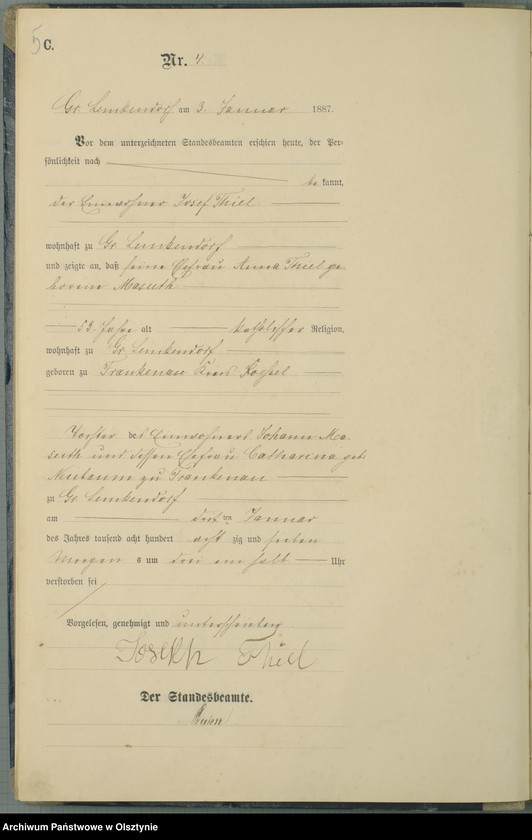 5 C.
Nr. 4.
Gr. Lemkendorf am 3. Januar 1887.
Vor dem unterzeichneten Standesbeamten erschien heute, der Per-
sönlichkeit nach
be kannt,
der Einwohner Josef Thiel
wohnhaft zu Gr. Lemkendorf
und zeigte an, daß seine Ehefrau Anna Thiel ge-
borene Masuth
53 Jahre alt katholischer Religion,
wohnhaft zu Gr. Lemkendorf
geboren zu Frankenau Kreis Roessel
Tochter des Einwohners Johann Ma-
suth und dessen Ehefrau Catharina geb.
zu Frankenau
zu Gr. Lemkendorf
am dritten Januar
des Jahres tausend acht hundert acht zig und sieben
Morgen s um drei ein halb Uhr
verstorben sei
Vorgelesen, genehmigt und unterschrieben
Joseph Thiel
Der Standesbeamte.
Archiwum Państwowe w Olsztynie